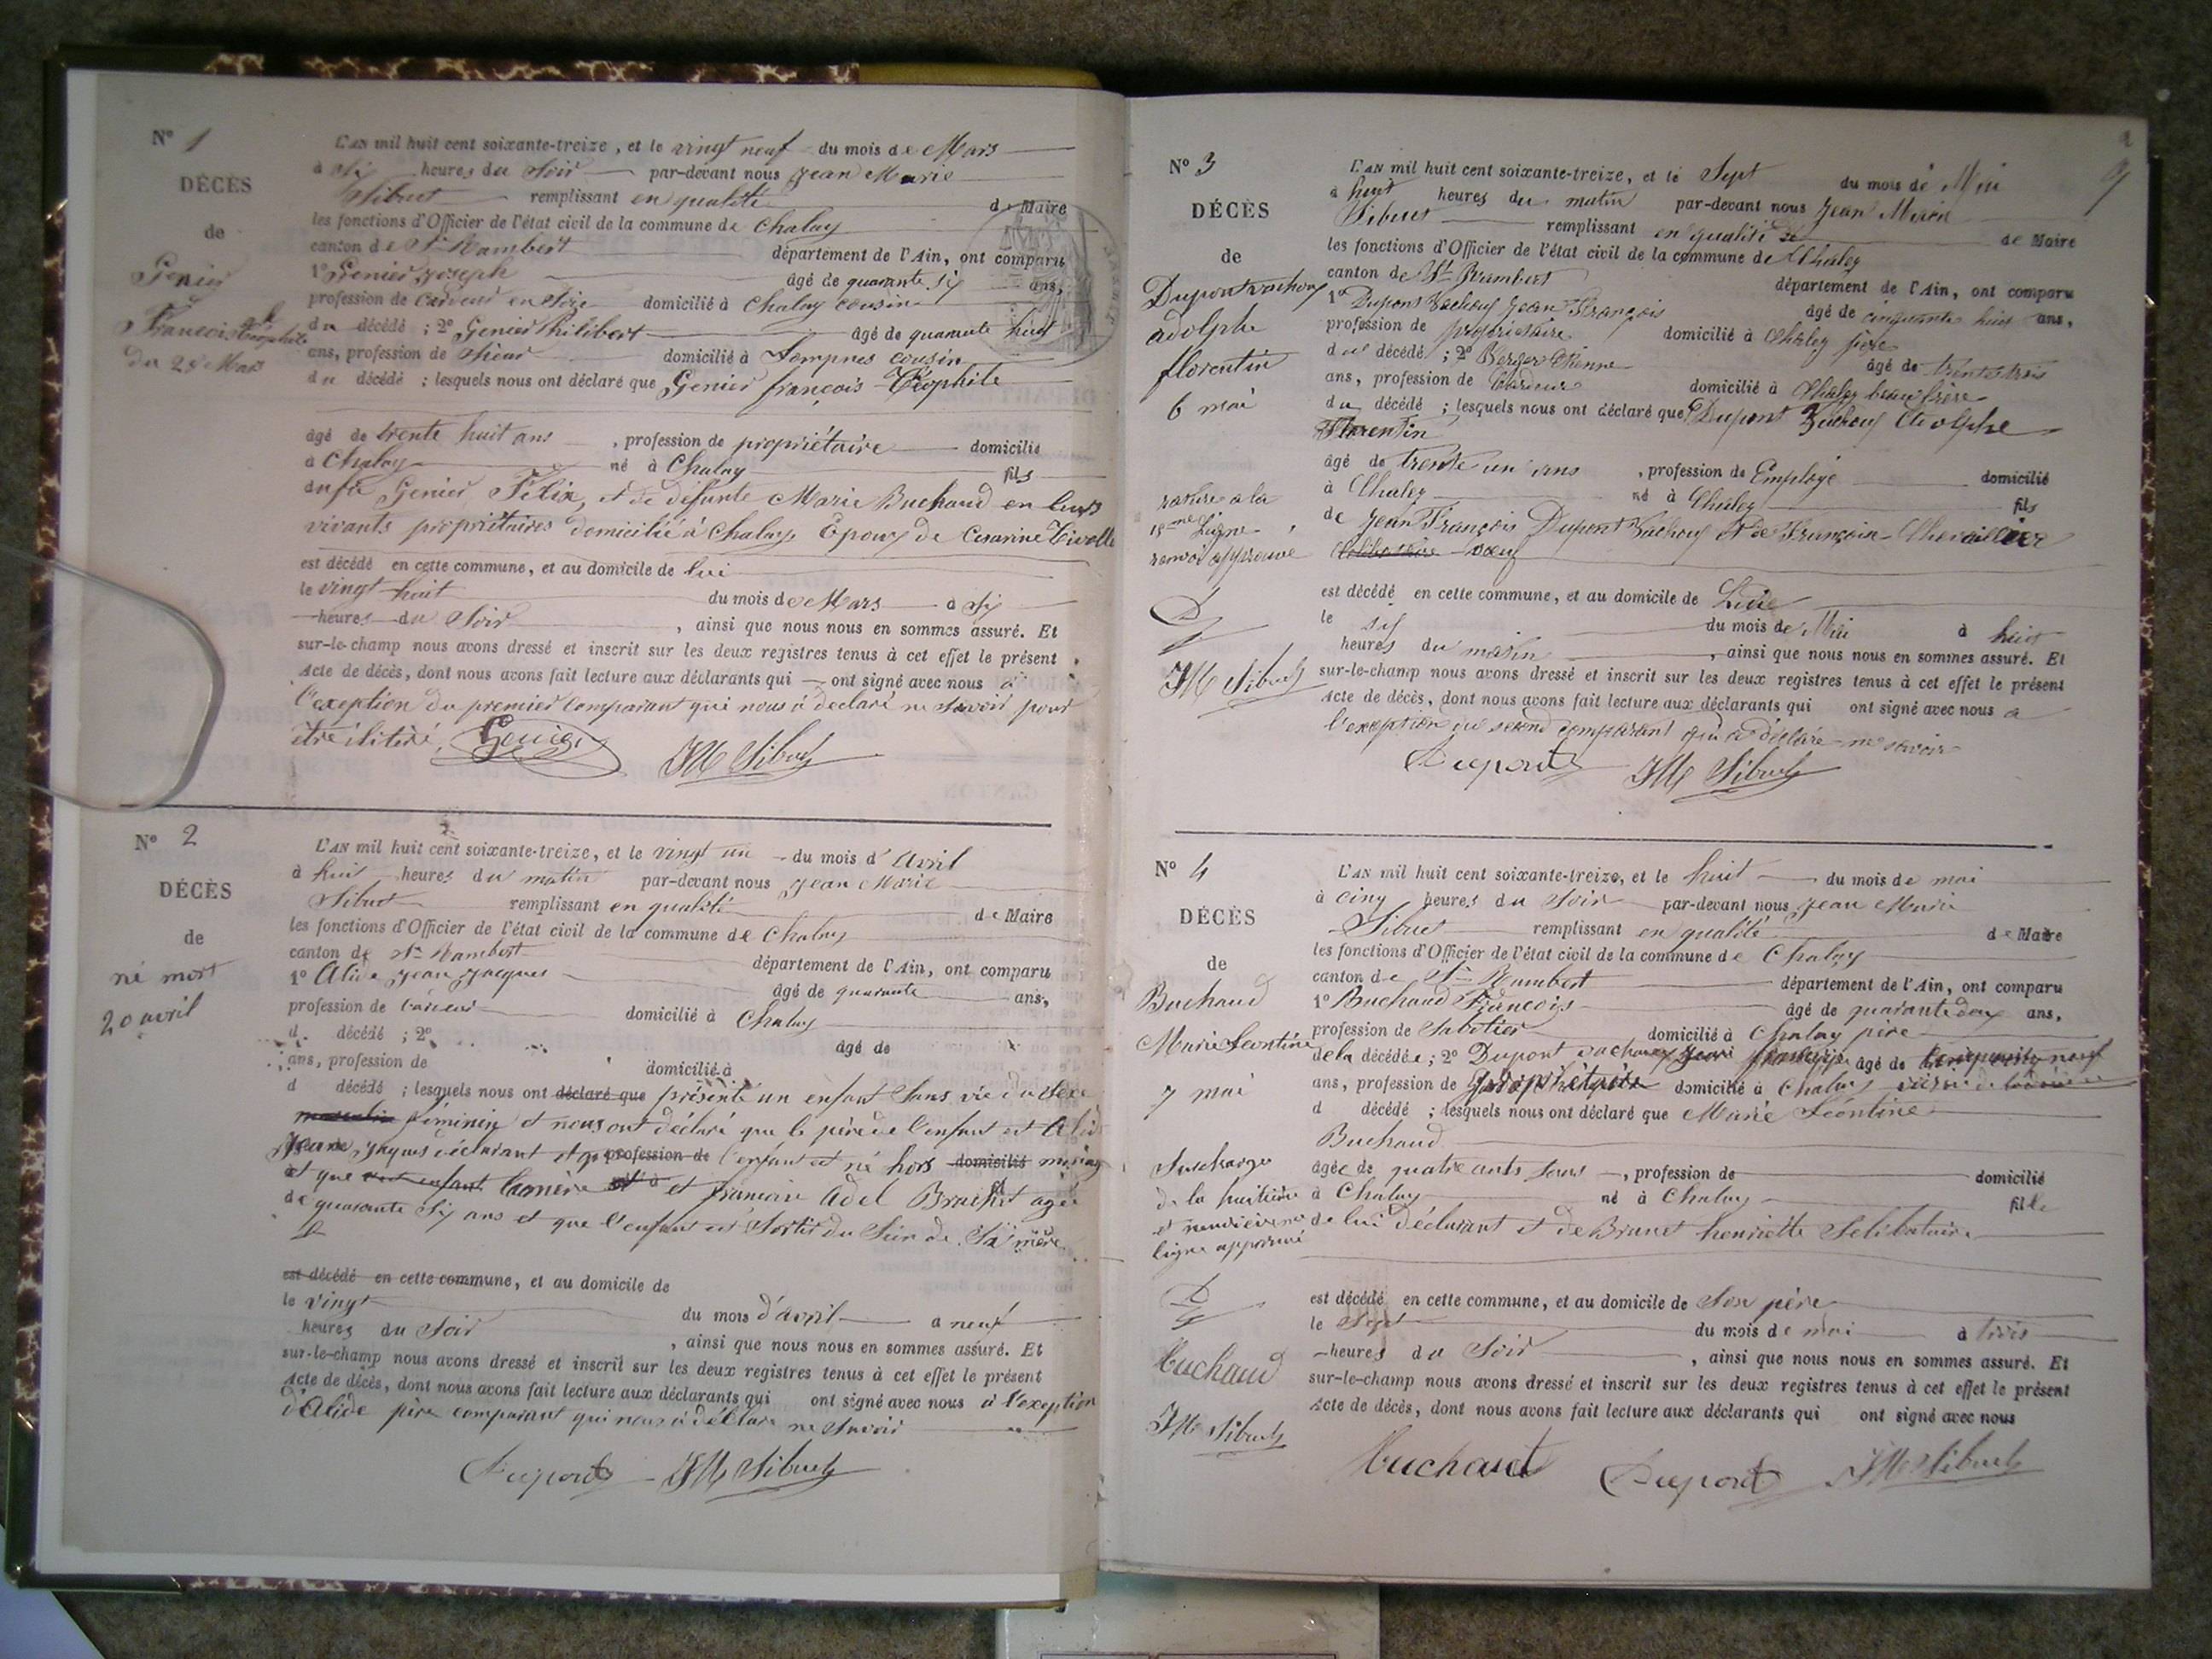 N° 1
DÉCÈS
de
Genier
François Téophile
du 28 Mars
L'AN mil huit cent soixante-treize, et le vingt neuf du mois de Mars
à six heures du Soir par-devant nous Jean Marie
Sibuet remplissant en qualité de Maire
les fonctions d'Officier de l'état civil de la commune de Chaley
canton de St Rambert département de l'Ain, ont comparu
1° Genier Joseph âgé de quarante six ans,
profession de cardeur en Soie domicilié à Chaley cousin
du décédé ; 2° Genier Philibert âgé de quarante huit
ans, profession de domicilié à cousin
du décédé ; lesquels nous ont déclaré que Genier françois Téophile
âgé de trente huit ans , profession de propriétaire domicilié
à Chaley né à Chaley fils
du fu Genier Félix, et de défunte Marie Buchaud en leurs
vivants propriétaires domicilié à Chaley Epoux de Cesarine Tivolle
est décédé en cette commune, et au domicile de lui
le vingt huit du mois de Mars à six
heures du Soir , ainsi que nous nous en sommes assuré. Et
sur-le-champ nous avons dressé et inscrit sur les deux registres tenus à cet effet le présent
Acte de décès, dont nous avons fait lecture aux déclarants qui ont signé avec nous à
l'exeption du premier Comparant qui nous à declaré ne Savoir pour
être ilitéré
Genier JM Sibuet
N° 2
DÉCÈS
de
né mort
20 avril
L'AN mil huit cent soixante-treize, et le vingt un du mois d'avril
à huit heures du matin par-devant nous Jean Marie
Sibuet remplissant en qualité de Maire
les fonctions d'Officier de l'état civil de la commune de Chaley
canton de St Rambert département de l'Ain, ont comparu
1° Alide Jean Jacques âgé de quarante ans,
profession de domicilié à Chaley
d décédé ; 2° âgé de
ans, profession de domicilié à
d décédé ; lesquels nous ont déclaré que présenté un enfant Sans vie du Sexe
masculin féminin et nous ont déclaré que le père de l'enfant est Alide
Jean Jaques déclarant et q profession de l'enfant est né hors domicilié
et que cet enfant la mère et à et francoise Adel agée
de quarante Six ans et que l'enfant est Sortit du Sein de Sa mère
est décédé en cette commune, et au domicile de
le vingt du mois d'avril à neuf
heures du Soir , ainsi que nous nous en sommes assuré. Et
sur-le-champ nous avons dressé et inscrit sur les deux registres tenus à cet effet le présent
Acte de décès, dont nous avons fait lecture aux déclarants qui ont signé avec nous à l'exeption
d'Alide père comparant qui nous à déclare ne Savoir
Dupont JM Sibuet
N° 3
DÉCÈS
de
Dupont vachoux
adolphe
florentin
6 mai
rature a la
15me Ligne
renvoi approuvé
D
JM Sibuet
L'AN mil huit cent soixante-treize, et le Sept du mois de Mai
à huit heures du matin par-devant nous Jean Marie
Sibuet remplissant en qualité de de Maire
les fonctions d'Officier de l'état civil de la commune de Chaley
canton de St Rambert département de l'Ain, ont comparu
1° Dupont Vachoux Jean François âgé de cinquante huit ans,
profession de proprietaire domicilié à Chaley père
du décédé ; 2° Berger Etienne âgé de trente trois
ans, profession de domicilié à Chaley beau frère
du décédé ; lesquels nous ont déclaré que Dupont Vachoux Adolphe
Florentin
âgé de trente un ans , profession de Employé domicilié
à Chaley né à Chaley fils
de Jean François Dupont Vachoux et de Françoise Chevaillier
Célibataire
est décédé en cette commune, et au domicile de
le six du mois de Mai à huit
heures du matin , ainsi que nous nous en sommes assuré. Et
sur-le-champ nous avons dressé et inscrit sur les deux registres tenus à cet effet le présent
Acte de décès, dont nous avons fait lecture aux déclarants qui ont signé avec nous a
l'exeption du second comparant qui a déclaré ne savoir
Dupont JM Sibuet
N° 4
DÉCÈS
de
Buchaud
Marie Leontine
7 mai
Surcharge
de la huitième
et neuvième
ligne approuvé
D
Buchaud
JM Sibuet
L'AN mil huit cent soixante-treize, et le huit du mois de mai
à cinq heures du Soir par-devant nous Jean Marie
Sibuet remplissant en qualité de Maire
les fonctions d'Officier de l'état civil de la commune de Chaley
canton de St Rambert département de l'Ain, ont comparu
1° Buchaud François âgé de quarante deux ans,
profession de Sabotier domicilié à Chaley père
de la décédée ; 2° Dupont vachoux Jean françois âgé de
ans, profession de domicilié à Chaley
d décédé ; lesquels nous ont déclaré que Marie Léontine
Buchaud
âgée de quatre ants , profession de domicilié
à Chaley né à Chaley fille
de lui déclarant et de Brunet henriette Selibataire
est décédé en cette commune, et au domicile de Son père
le Sept du mois de mai à trois
heures du Soir , ainsi que nous nous en sommes assuré. Et
sur-le-champ nous avons dressé et inscrit sur les deux registres tenus à cet effet le présent
Acte de décès, dont nous avons fait lecture aux déclarants qui ont signé avec nous
Buchaud Dupont JM Sibuet